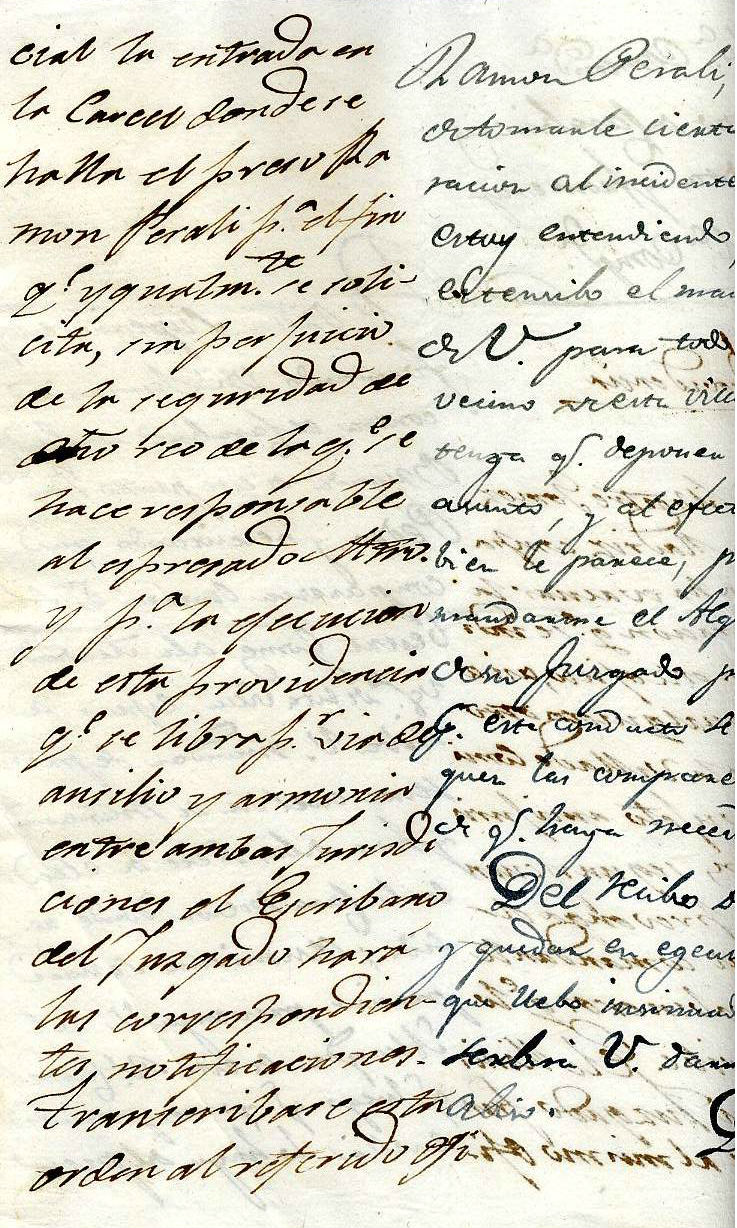 cial la entrada en
la Carcel donde se
halla el preso Ra
mon Perali p.ª el fin
q.e ygualm.te se soli-
cita, sin perjuicio
de la seguridad de
dho reo de la q.e se
hace responsable
al espresado
y p.ª la ejecucion
de esta providencia
q.e se libra p.r via de
ausilio y armonia
entre ambas Jurisdi
ciones el Escribano
del Juzgado hará
las correspondien-
tes notificaciones.
Transcribase esta
orden al referido ofi
Ramon Perali,
de tomarle
racion al incidente
estoy entendiendo,
estensibo el
de V. para todo
vecino de esta vill
tenga q.e deponer
asunto, y al efect
bien le parece, p
mandarme el Alg
de su Juzgado p
q.e este conducto se
quen las comparec
de q.e haya neces
Del recibo d
y quedar en egecu
que llebo insinuad
serbira V. darm
abiso.
D